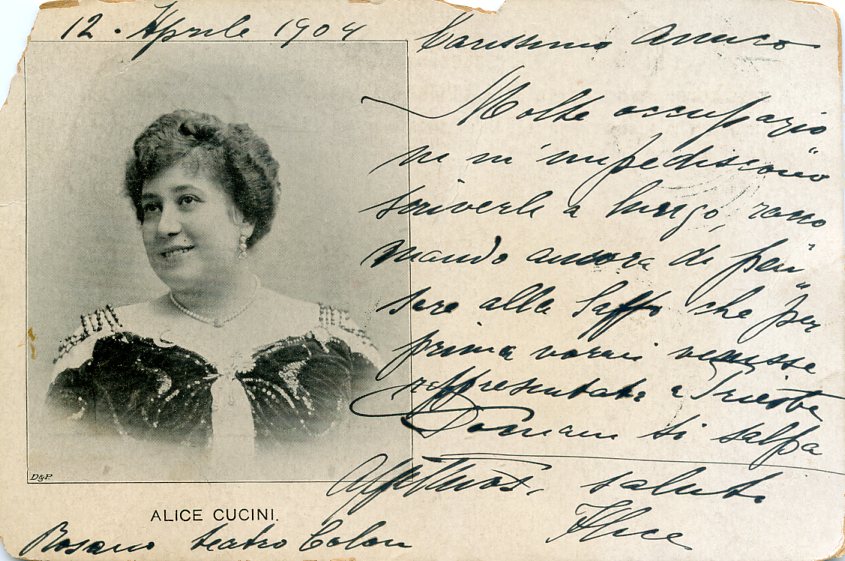 12. Aprile 1904
Carissimo Amico
Molte occupazio
ni m'impediscono
scriverle a lungo, racco
mando ancora di pen
sare alla Saffo che per
prima vorrei venisse
rappresentata a Trieste
Domani si salpa
Affettuosi saluti
Alice
D&P.
ALICE CUCINI.
Rosario teatro Colon